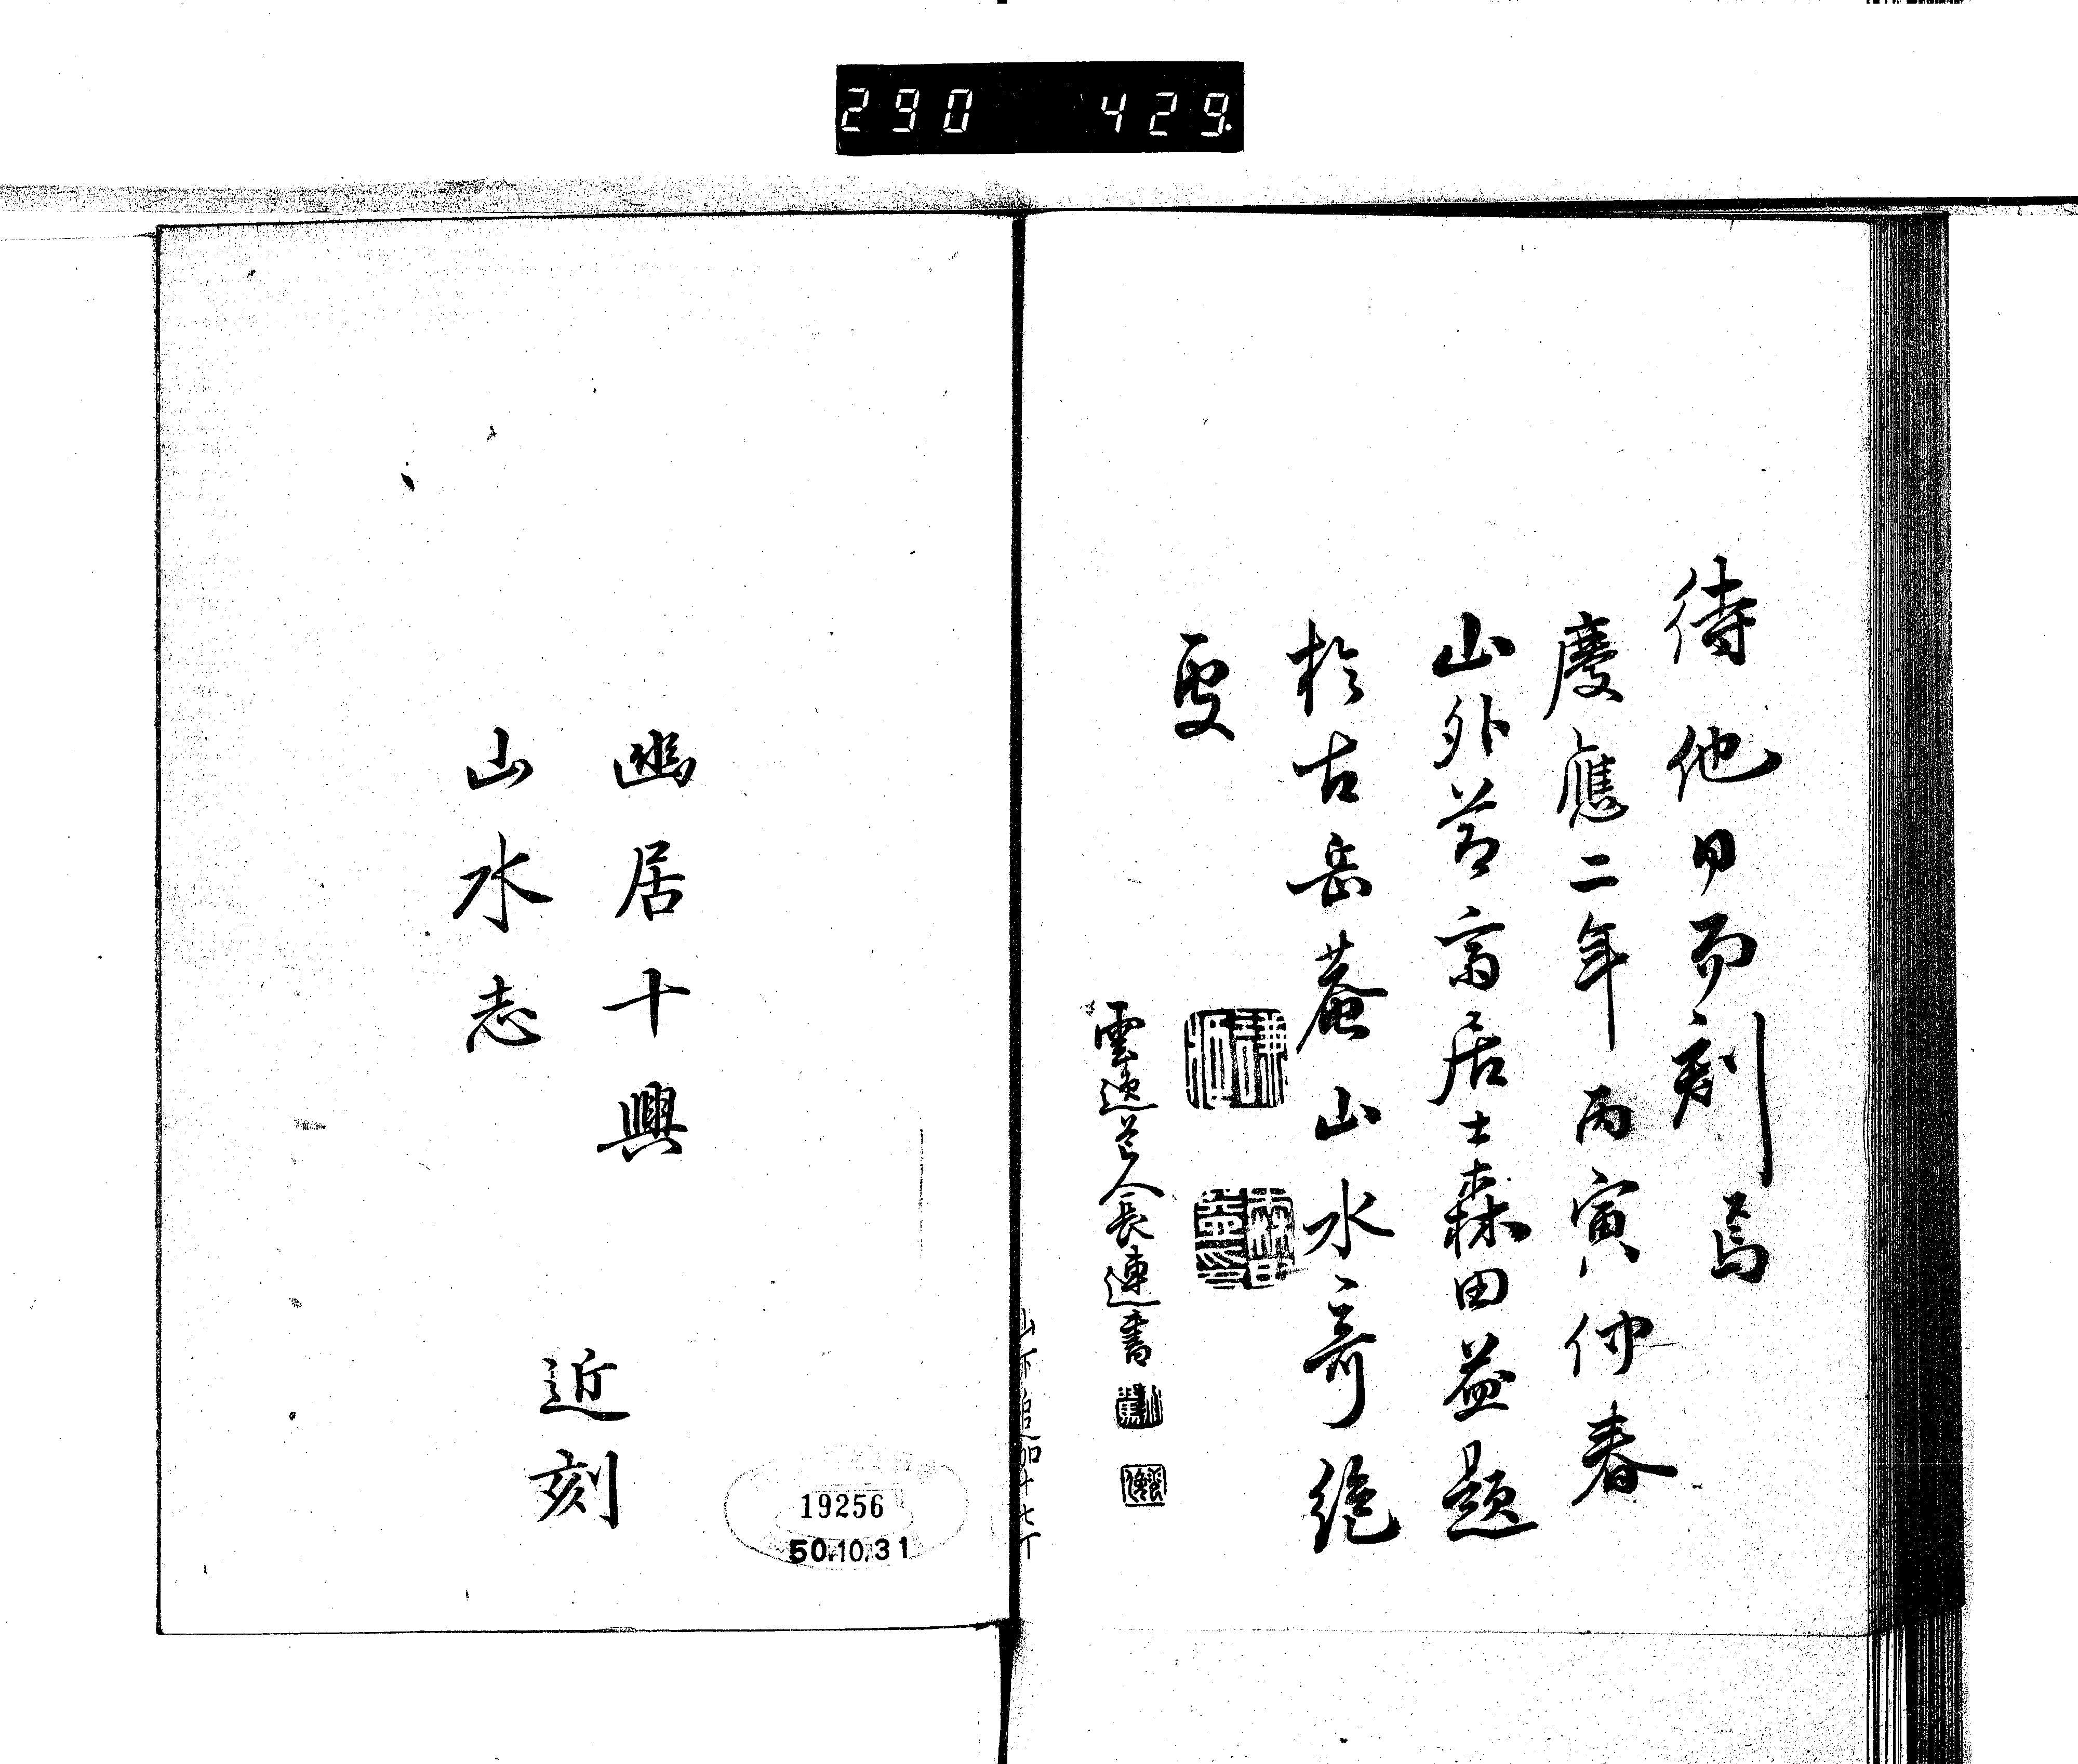 290 429
待他日而刻焉
慶應二年丙寅仲春
山外節齋居士森田益題
於古岳菴山水奇絶
處
森田益印
雲逸道人長連書
追加十七丁
幽居十興
山水志
近刻
19256
50.10.31